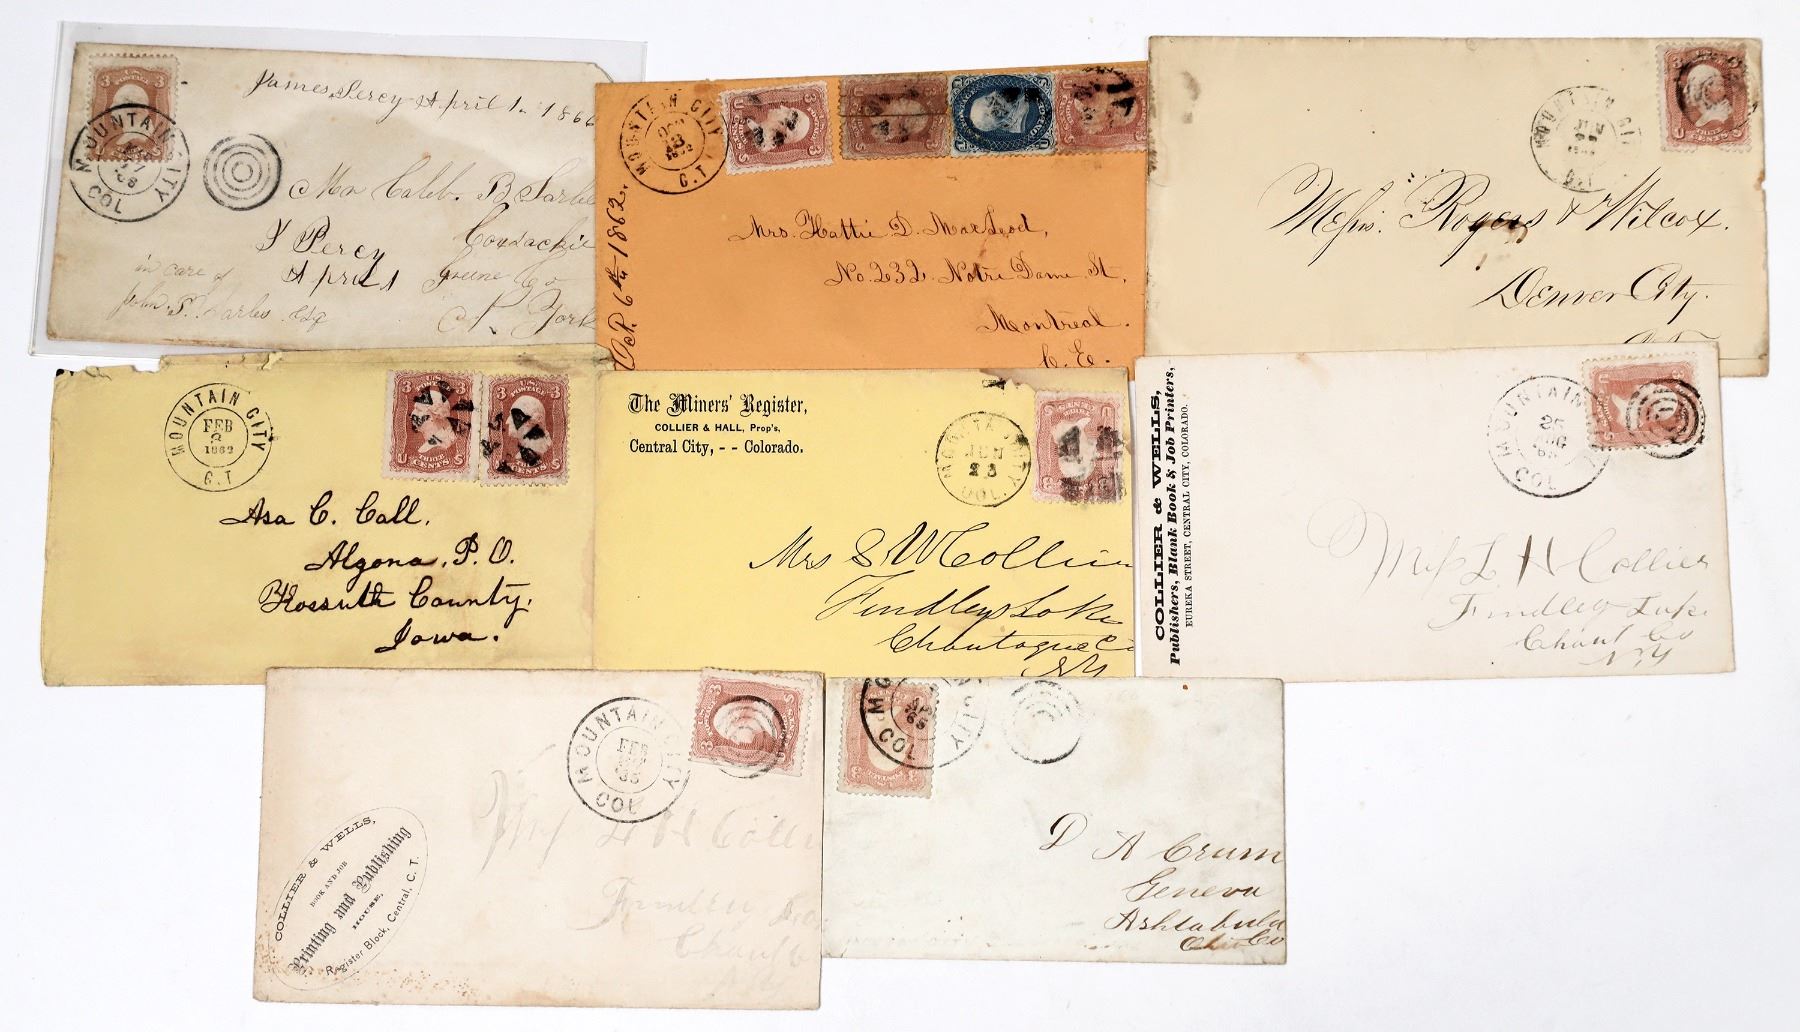 3 3
U.S. POSTAGE
MOUNTAIN CITY
COL
James Percy April 1. 1866
Mr Caleb. B. Sarles
Coxsackie
Greene Co
N. York
J Percy
April 1
in care of
John S. Sarles Esq
MOUNTAIN CITY
1862
C.T
Oct. 6th 1862.
Mrs. Hattie D. MacLeod,
No. 232. Notre Dame St.
Montreal.
C. E.
MOUNTAIN CITY
JUN
C.T
THREE CENTS
Messrs. Rogers & Wilcox.
Denver City.
MOUNTAIN CITY
FEB
1862
C.T
3 3
THREE CENTS
U.S. POSTAGE
THREE CENTS
Asa C. Call.
Algona, P.O.
Kossuth County,
Iowa.
The Miners' Register,
COLLIER & HALL, Prop's,
Central City, - - Colorado.
MOUNTAIN CITY
JUN
23
COL.
Mrs S W Collier
Findley Lake
Chautauque Co
N.Y
COLLIER & WELLS,
Publishers, Blank Book & Job Printers,
EUREKA STREET, CENTRAL CITY, COLORADO.
MOUNTAIN
25
AUG
COL
Miss L H Collier
Findley Lake
Chaut Co
N.Y
COLLIER & WELLS,
BOOK AND JOB
Printing and Publishing
HOUSE,
Register Block, Central, C. T.
MOUNTAIN CITY
FEB
COL
Findley
Chaut
CITY
COL
D A Crum
Geneva
Ashtabula
Ohio Co